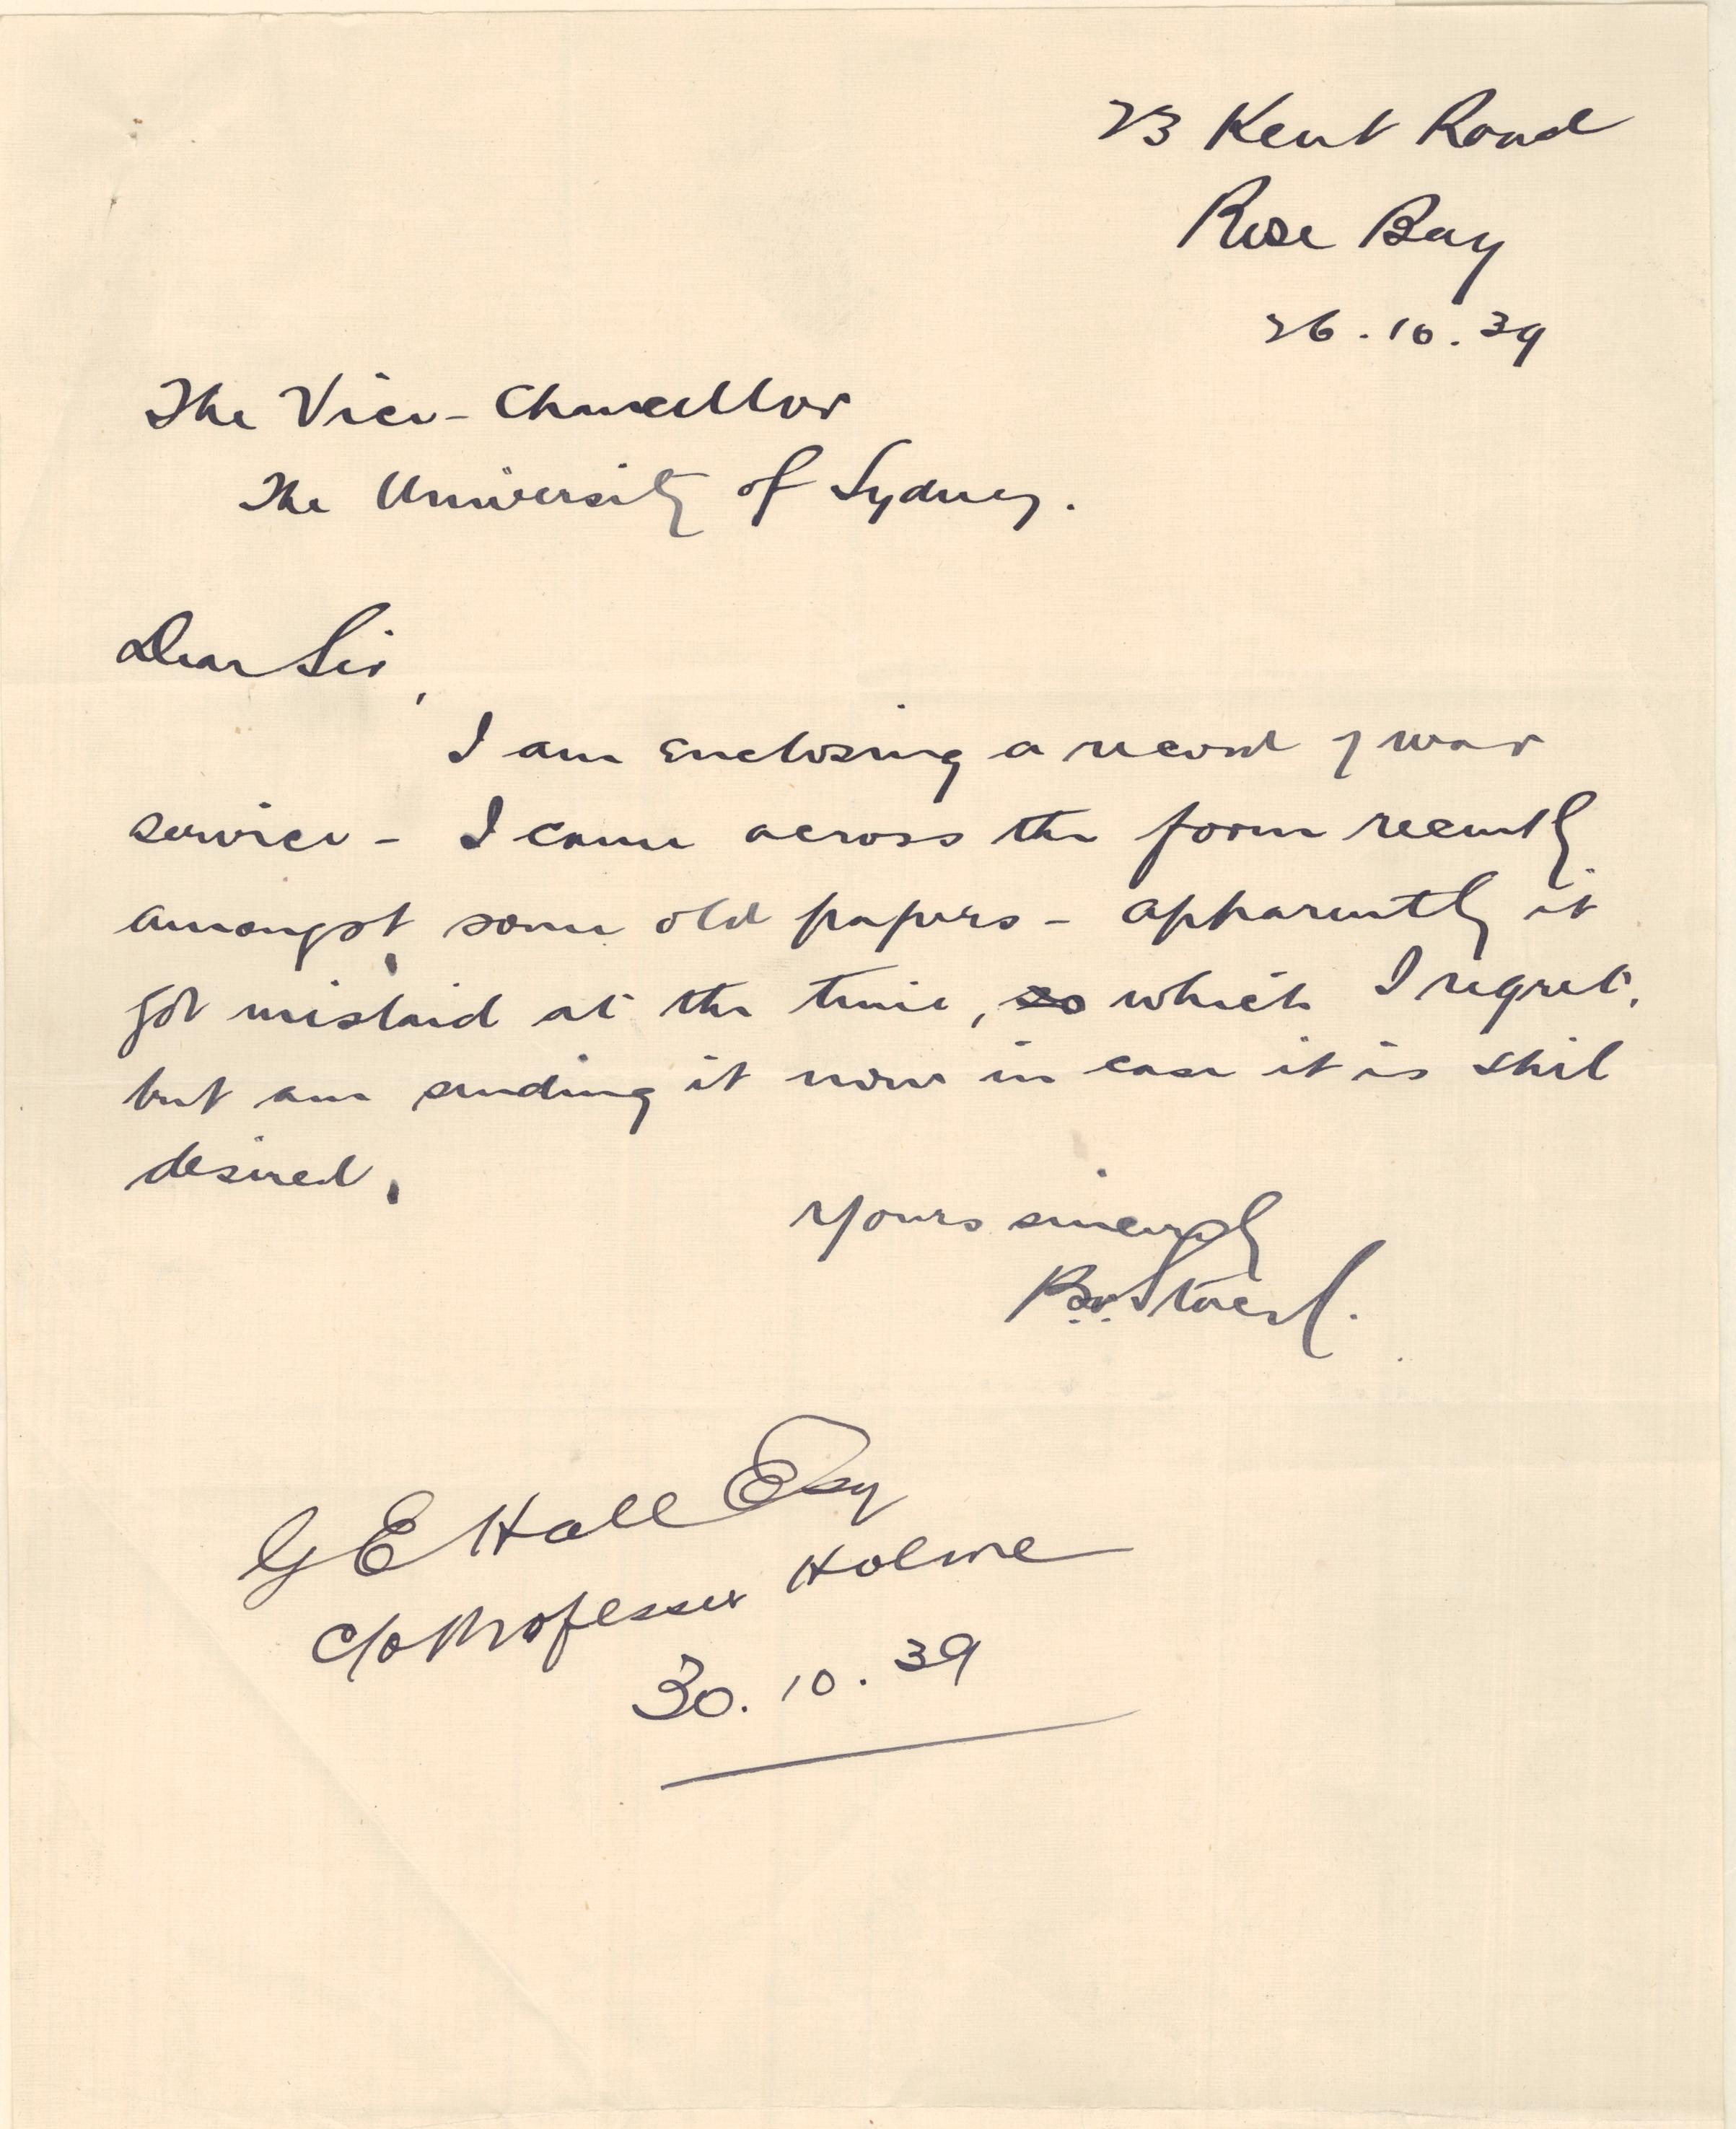 23 Kent Road
Rose Bay
26.10.39
The Vice-Chancellor
The University of Sydney.
Dear Sir,
I am enclosing a record of war
service - I came across the form recently
amongst some old papers - apparently it
got mislaid at the time, so which I regret,
but am sending it now in case it is still
desired.
Yours sincerely
G E Hall Esq
c/o Professor Holme
30.10.39